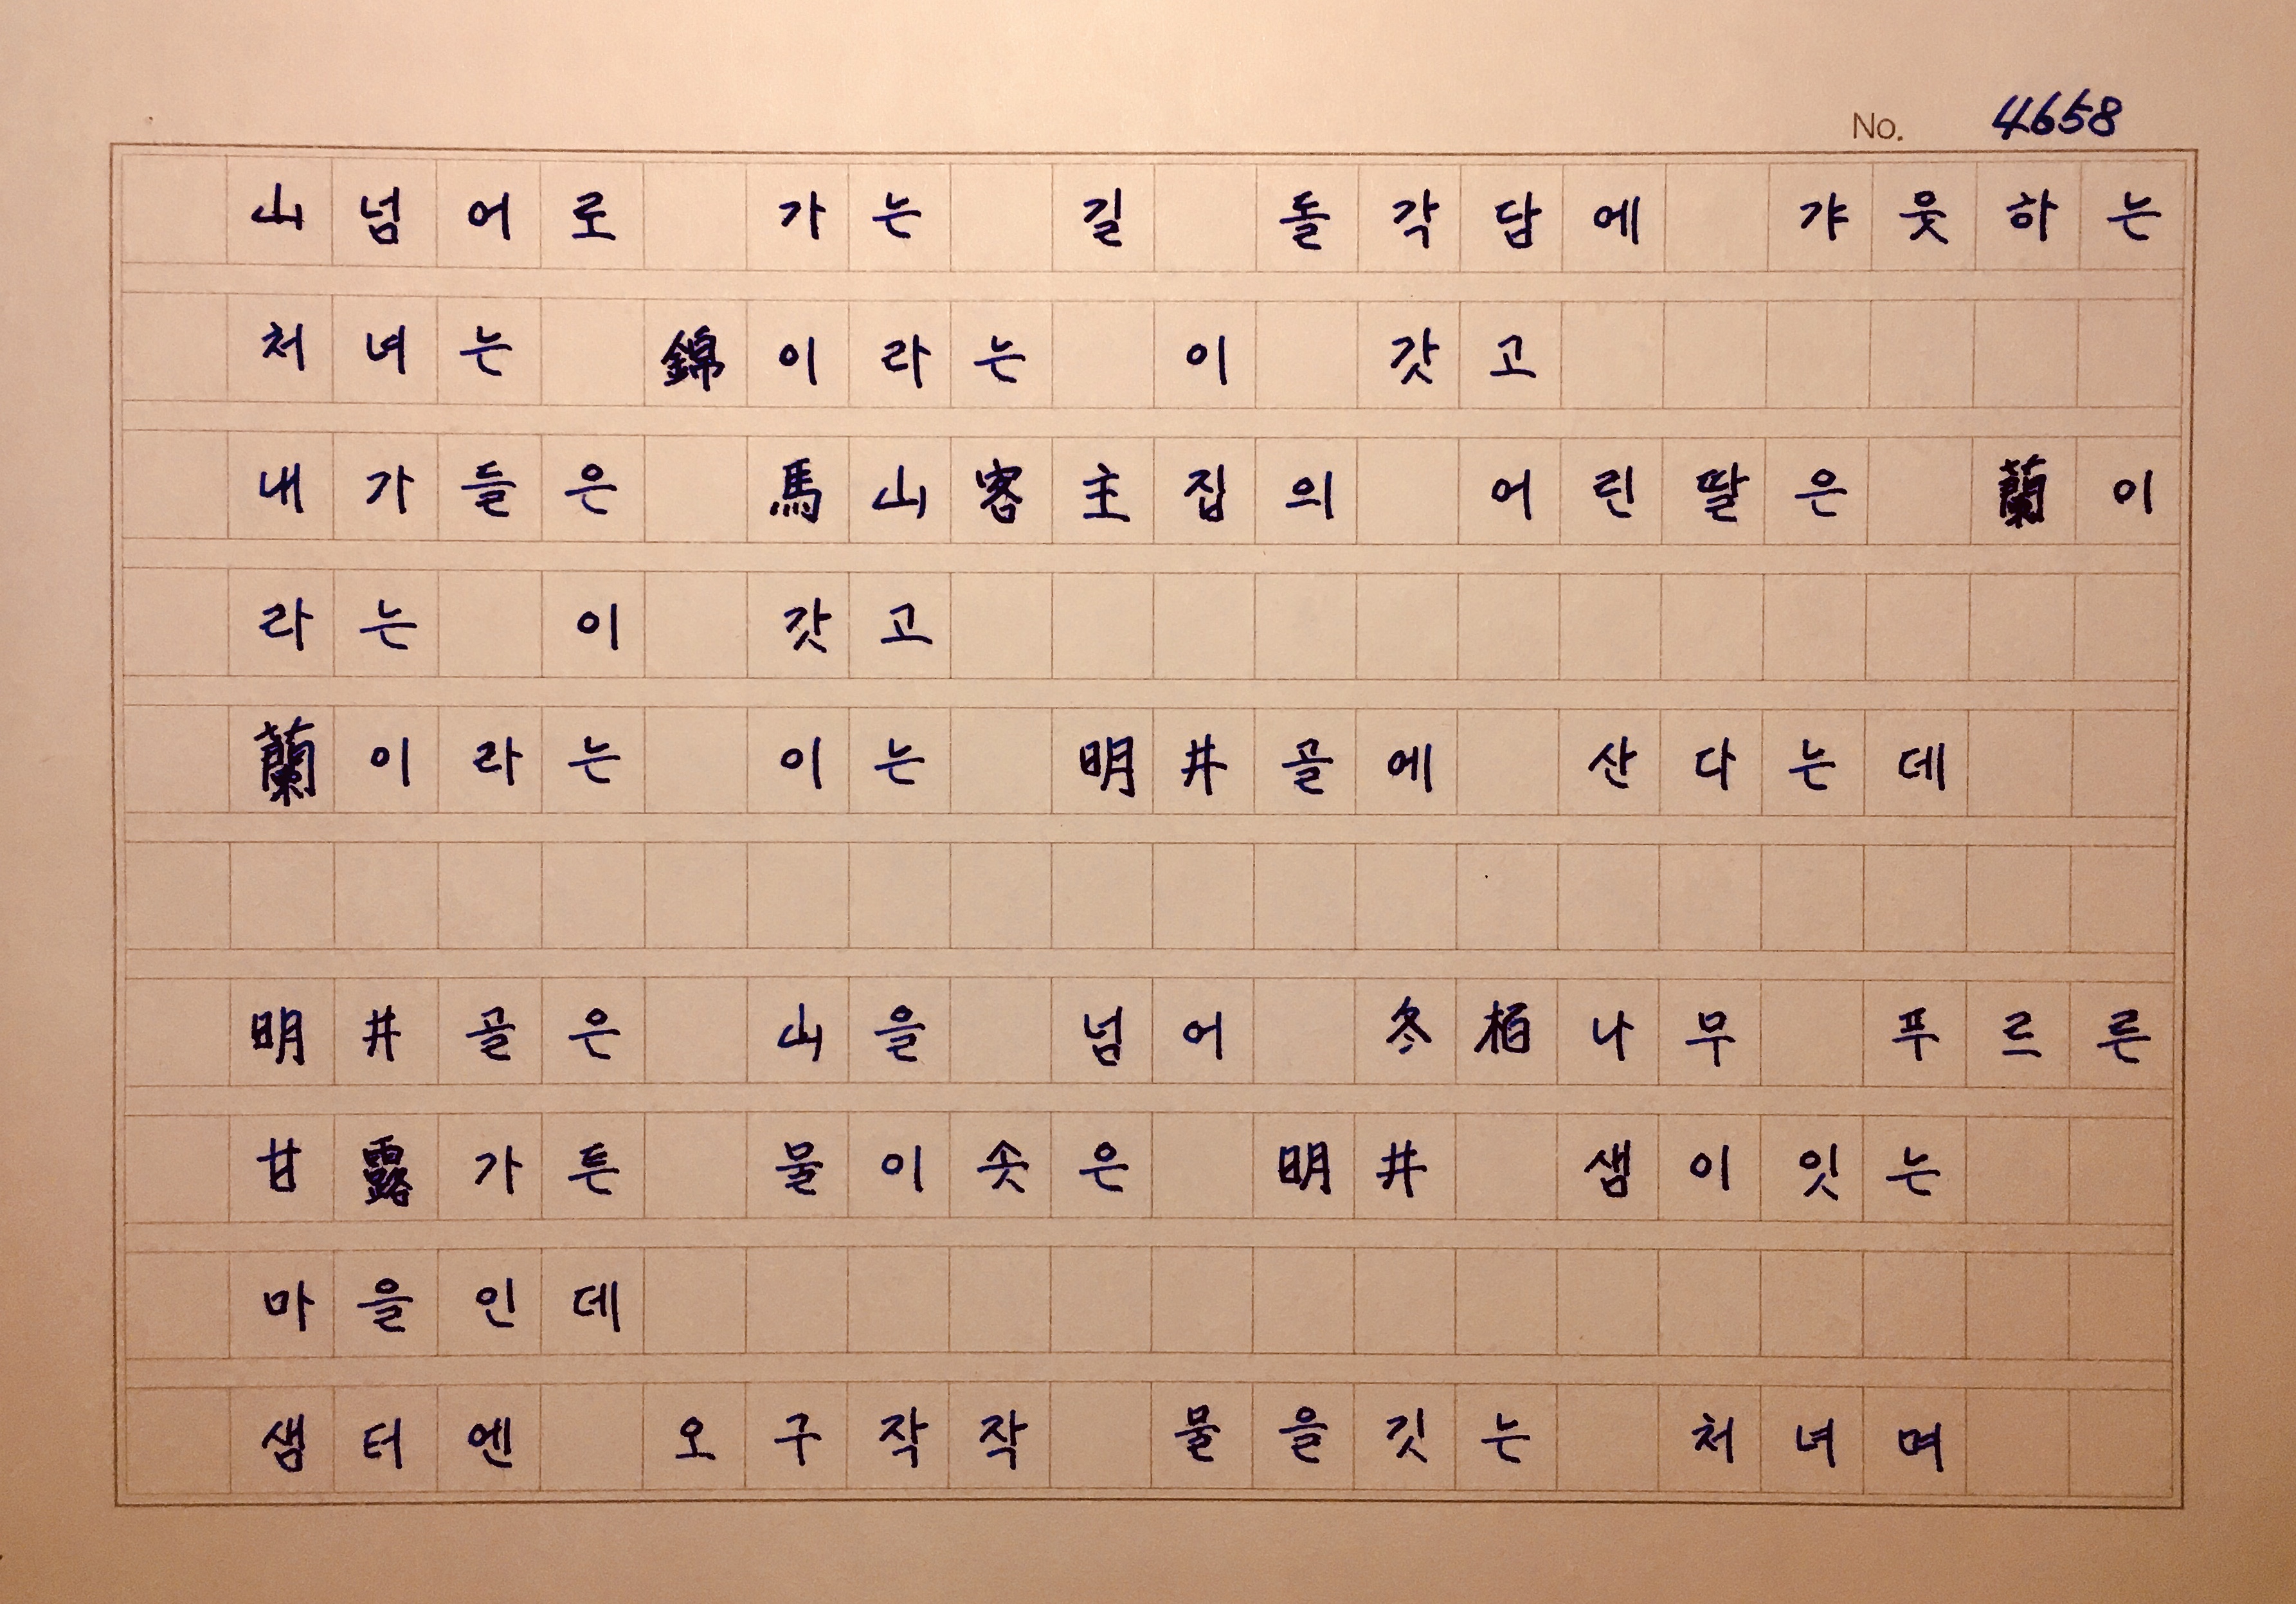 No. 4658
山넘어로 가는 길 돌각담에 갸웃하는
처녀는 錦이라는 이 갓고
내가들은 馬山客主집의 어린딸은 蘭이
라는 이 갓고
蘭이라는 이는 明井골에 산다는데
明井골은 山을 넘어 冬柏나무 푸르른
甘露가튼 물이솟은 明井 샘이잇는
마을인데
샘터엔 오구작작 물을깃는 처녀며